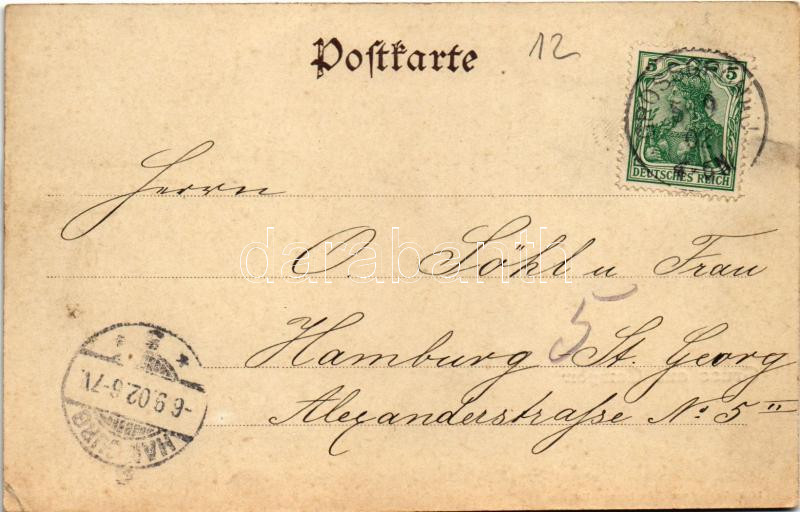 Postkarte
12
5 5
DEUTSCHES REICH
Herrn
O. Söhl u Frau
5
Hamburg St. Georg
Alexanderstraße No. 5 II
HAMBURG
-6.9.02.6-7V.
darabanth